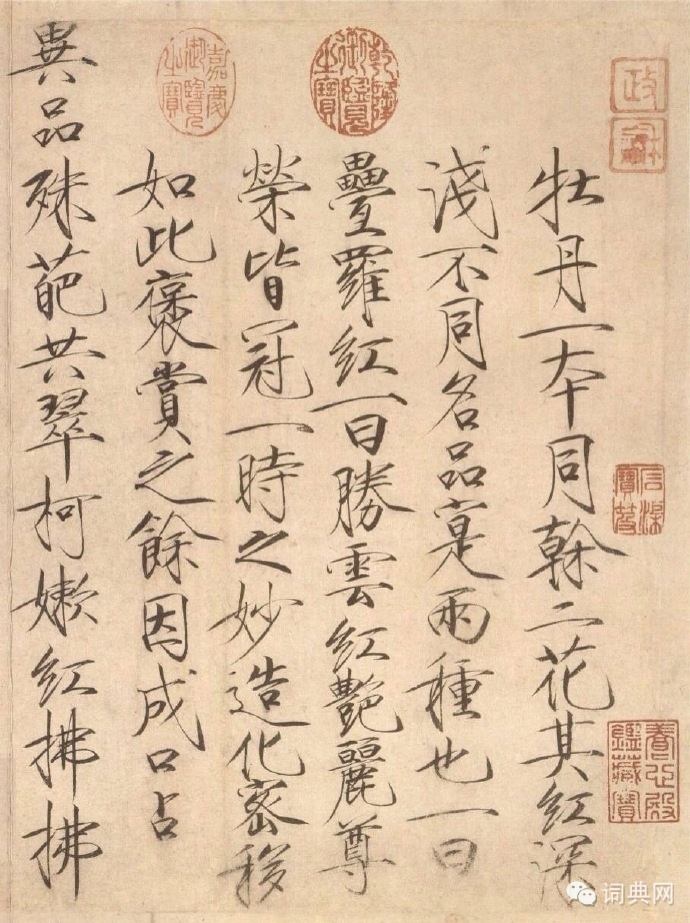 牡丹一本同榦二花其红深
浅不同名品寔兩種也一曰
疊羅红一曰勝雲红艶麗尊
榮皆冠一時之妙造化宻移
如此褒賞之餘因成口占
異品殊葩共翠柯嫰红拂拂
乾隆御覽之寶
嘉慶御覽之寶
養心殿鑑藏寶
词典网